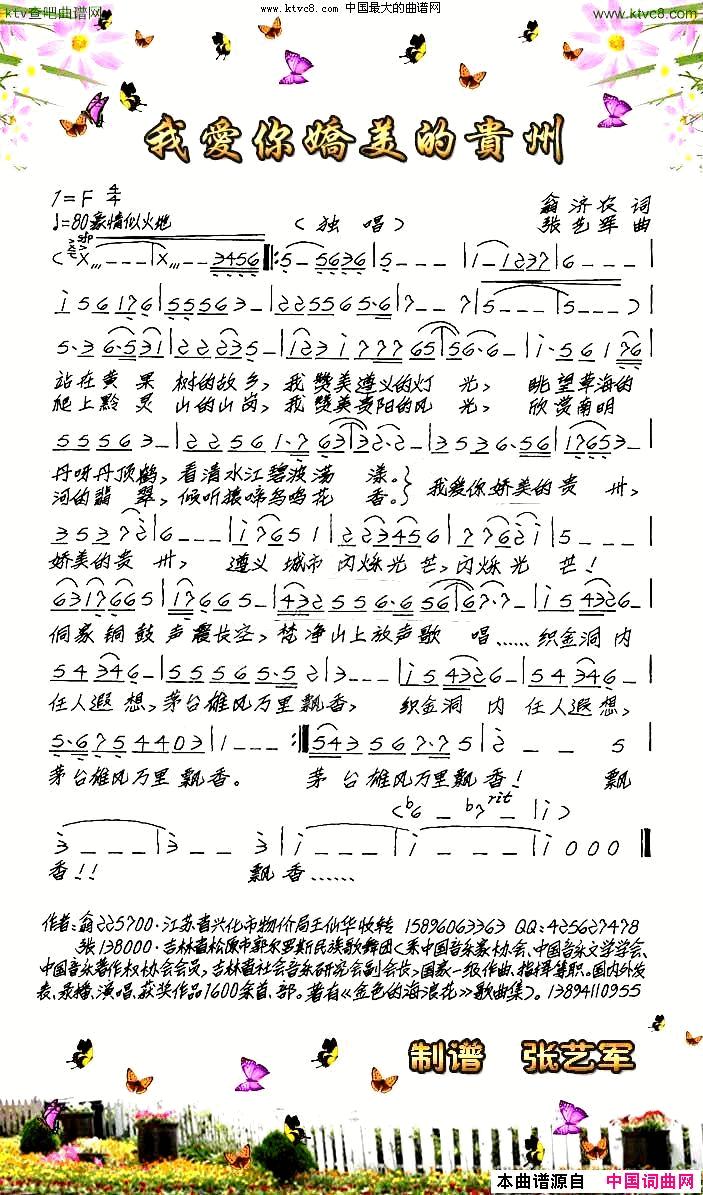 ktv查吧曲谱网
www.ktvc8.com 中国最大的曲谱网
www.ktvc8.com
我愛你嬌美的貴州
1=F 4/4
♩=80豪情似火地
(独唱)
翁济农 词
张艺军 曲
站在黄果树的故乡,我赞美遵义的灯光,眺望草海的
爬上黔灵山的山岗,我赞美贵阳的风光,欣赏南明
丹呀丹顶鹤,看清水江碧波荡漾。
河的翡翠,倾听猿啼鸟鸣花香。
我爱你娇美的贵州,
娇美的贵州,遵义城市闪烁光芒,闪烁光芒!
侗家铜鼓声震长空,梵净山上放声歌唱……织金洞内
任人遐想,茅台雄风万里飘香,织金洞内任人遐想,
茅台雄风万里飘香。茅台雄风万里飘香!飘
rit
香!!飘香……
作者:翁225700·江苏省兴化市物价局王仙华收转 15896063363 QQ:425627478
张138000·吉林省松原市郭尔罗斯民族歌舞团<系中国音乐家协会、中国音乐文学学会、
中国音乐著作权协会会员,吉林省社会音乐研究会副会长>国家一级作曲、指挥兼职。国内外发
表、录播、演唱、获奖作品1600余首、部。著有《金色的海浪花》歌曲集)。13894110955
制谱 张艺军
本曲谱源自 中国词曲网